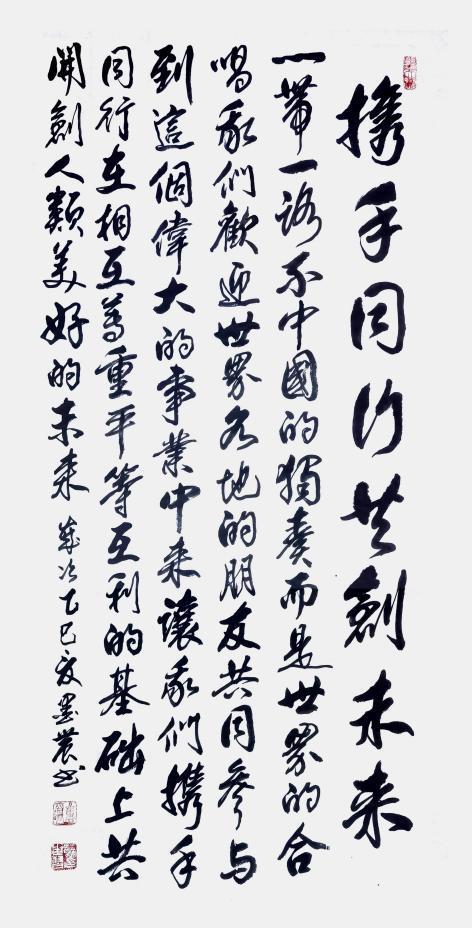 携手同行共創未来
一帶一路不中國的獨奏而是世界的合
唱我們歡迎世界各地的朋友共同參与
到這個偉大的事業中来讓我們携手
同行在相互尊重平等互利的基础上共
開創人類美好的未来 歲次乙巳夏墨農书